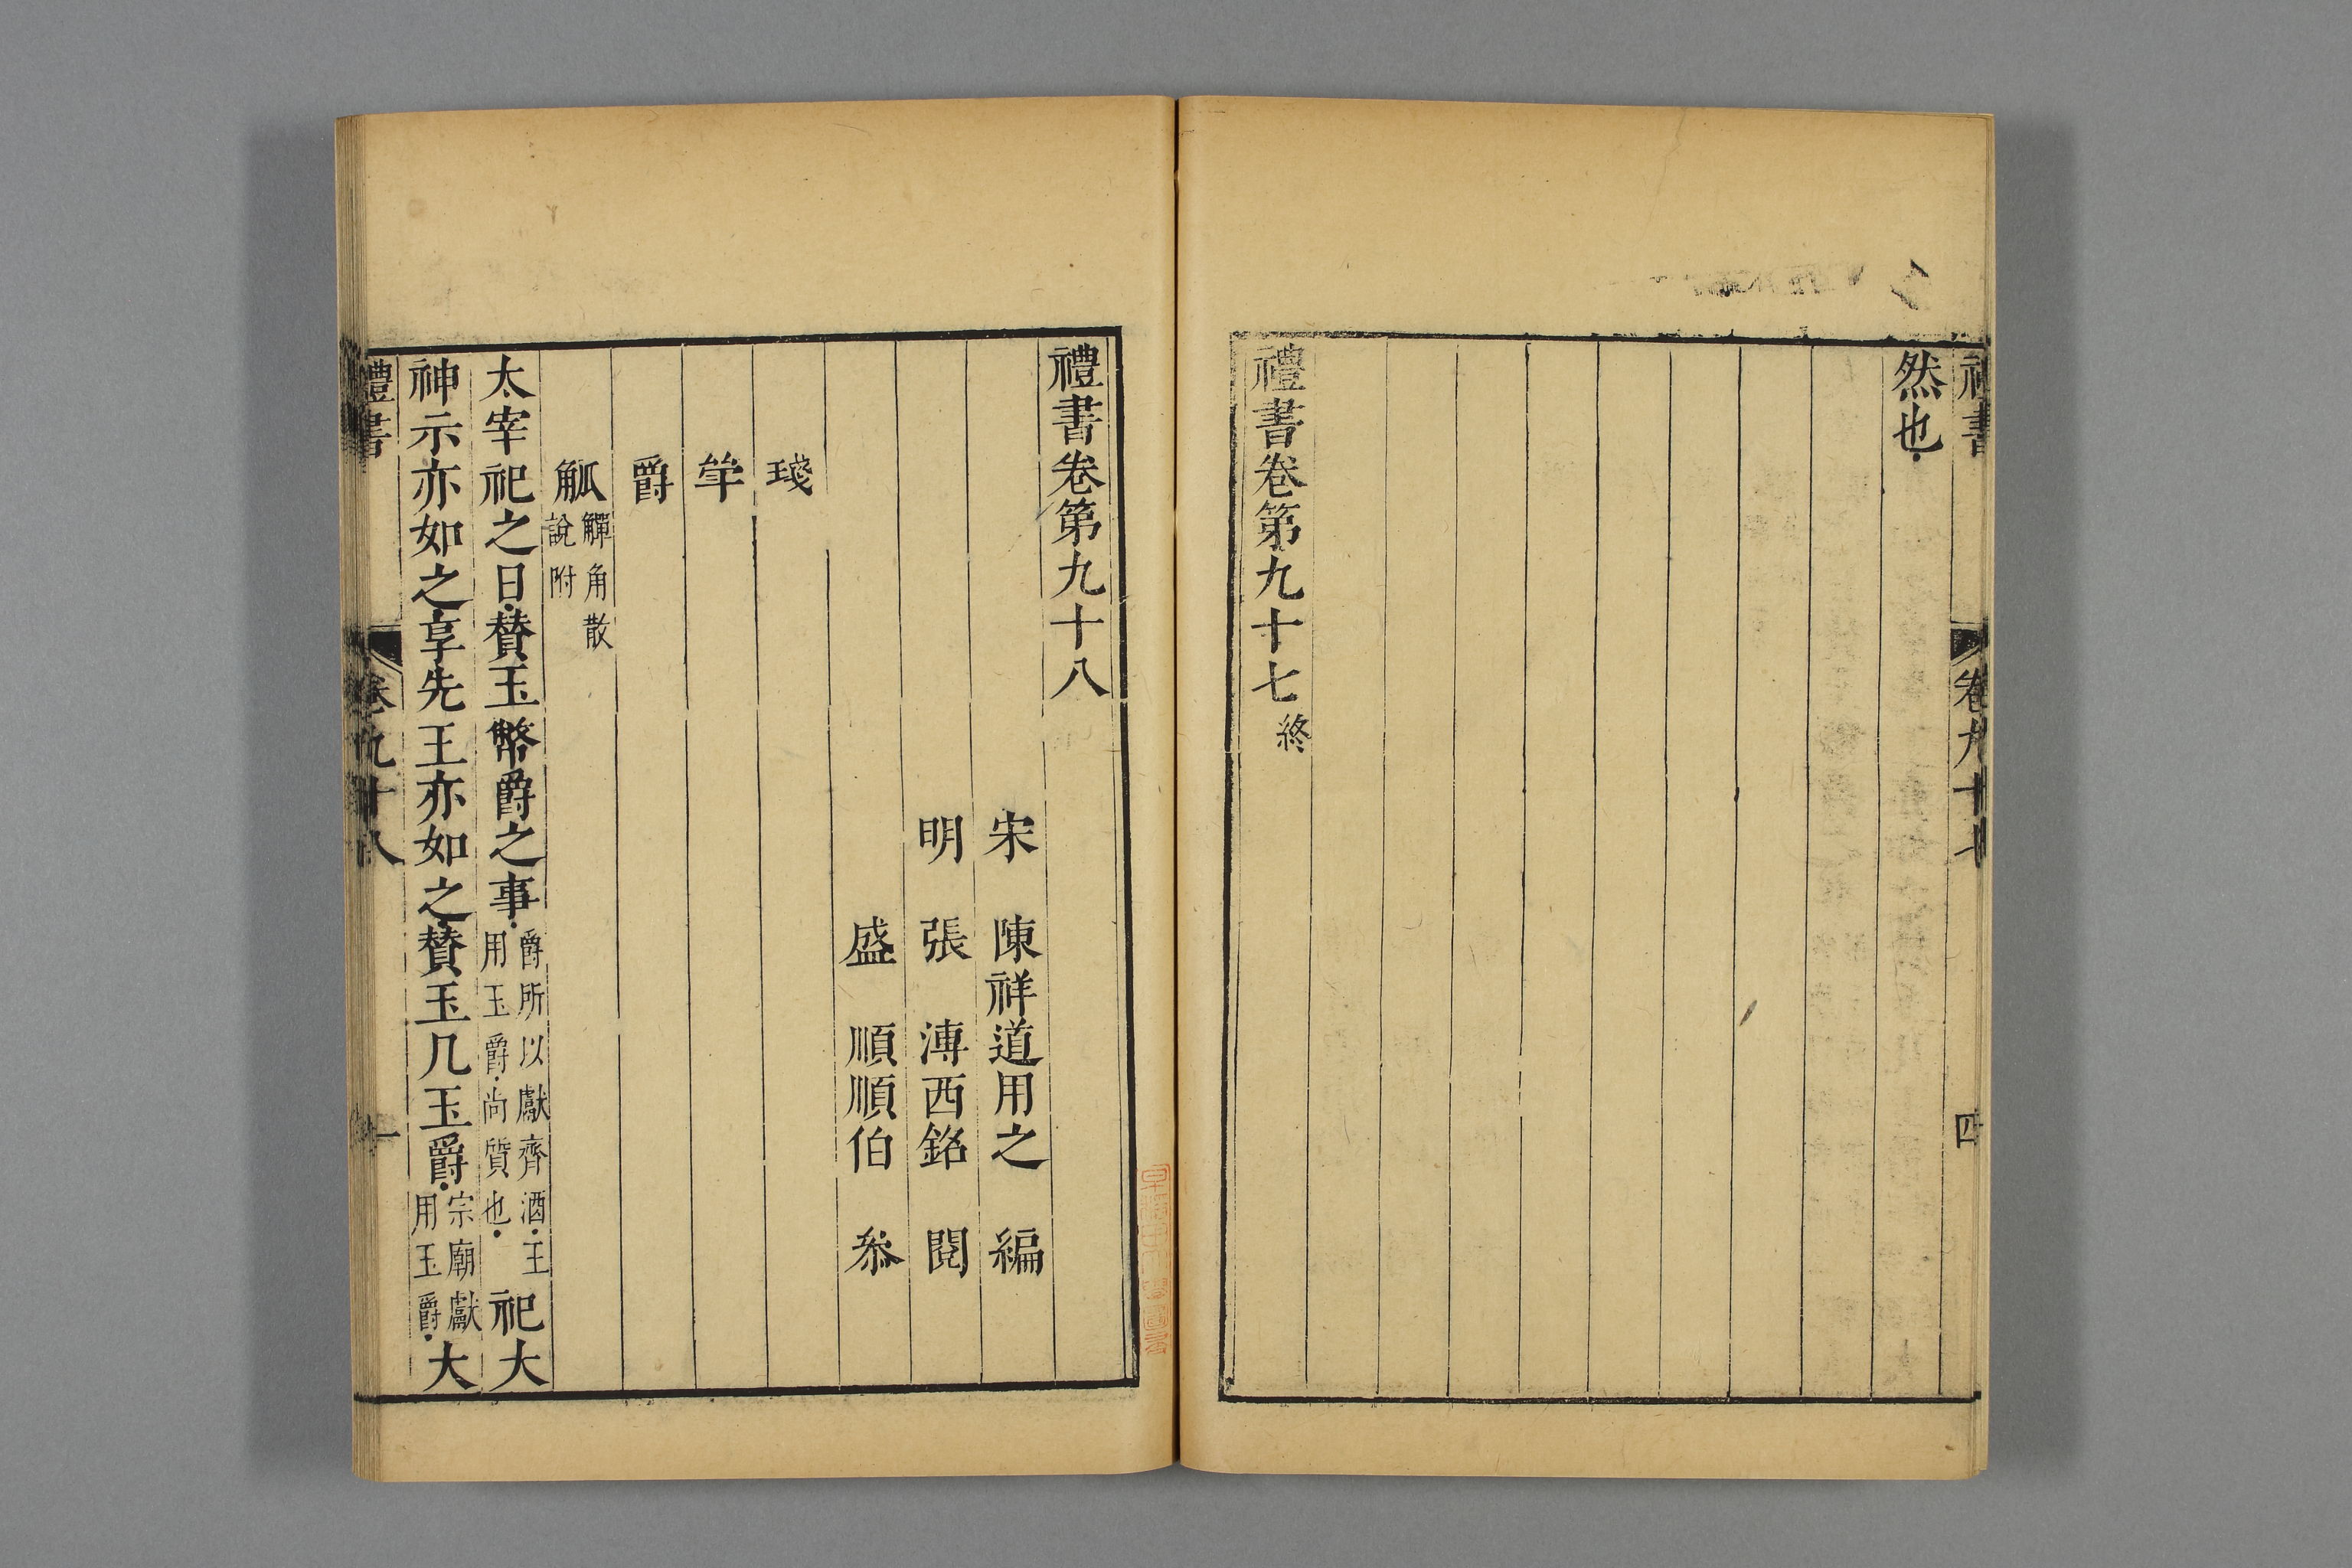 然也
禮書卷第九十七終
卷九十七
四
禮書卷第九十八
宋 陳祥道用之 編
明 張 溥西銘 閱
盛 順順伯 叅
琖
斝
爵
觚觶角散
說附
太宰祀之日贊玉幣爵之事爵所以獻齊酒王用玉爵尚質也祀大
神示亦如之享先王亦如之贊玉几玉爵宗廟獻用玉爵大
禮書
卷九十八
一